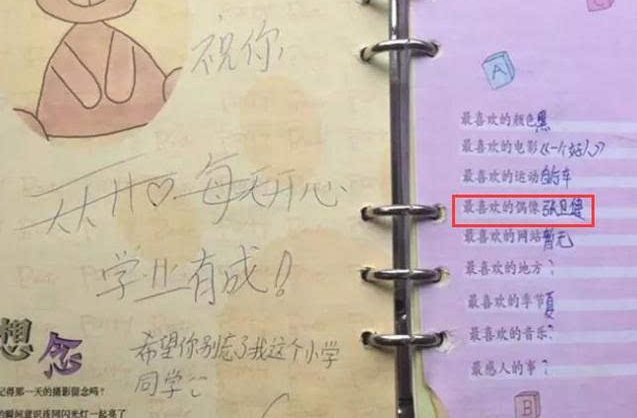 祝你,
天天开♡ 每天开心
学业有成!
希望你别忘了我这个小学
同学
想念
记得那一天的摄影留念吗?
的瞬间意识连同闪光灯一起亮了
A
C
最喜欢的颜色黑
最喜欢的电影《一个好人》
最喜欢的运动自行车
最喜欢的偶像张卫健
最喜欢的网站暂无
最喜欢的地方?
最喜欢的季节夏
最喜欢的音乐?
最感人的事?
B